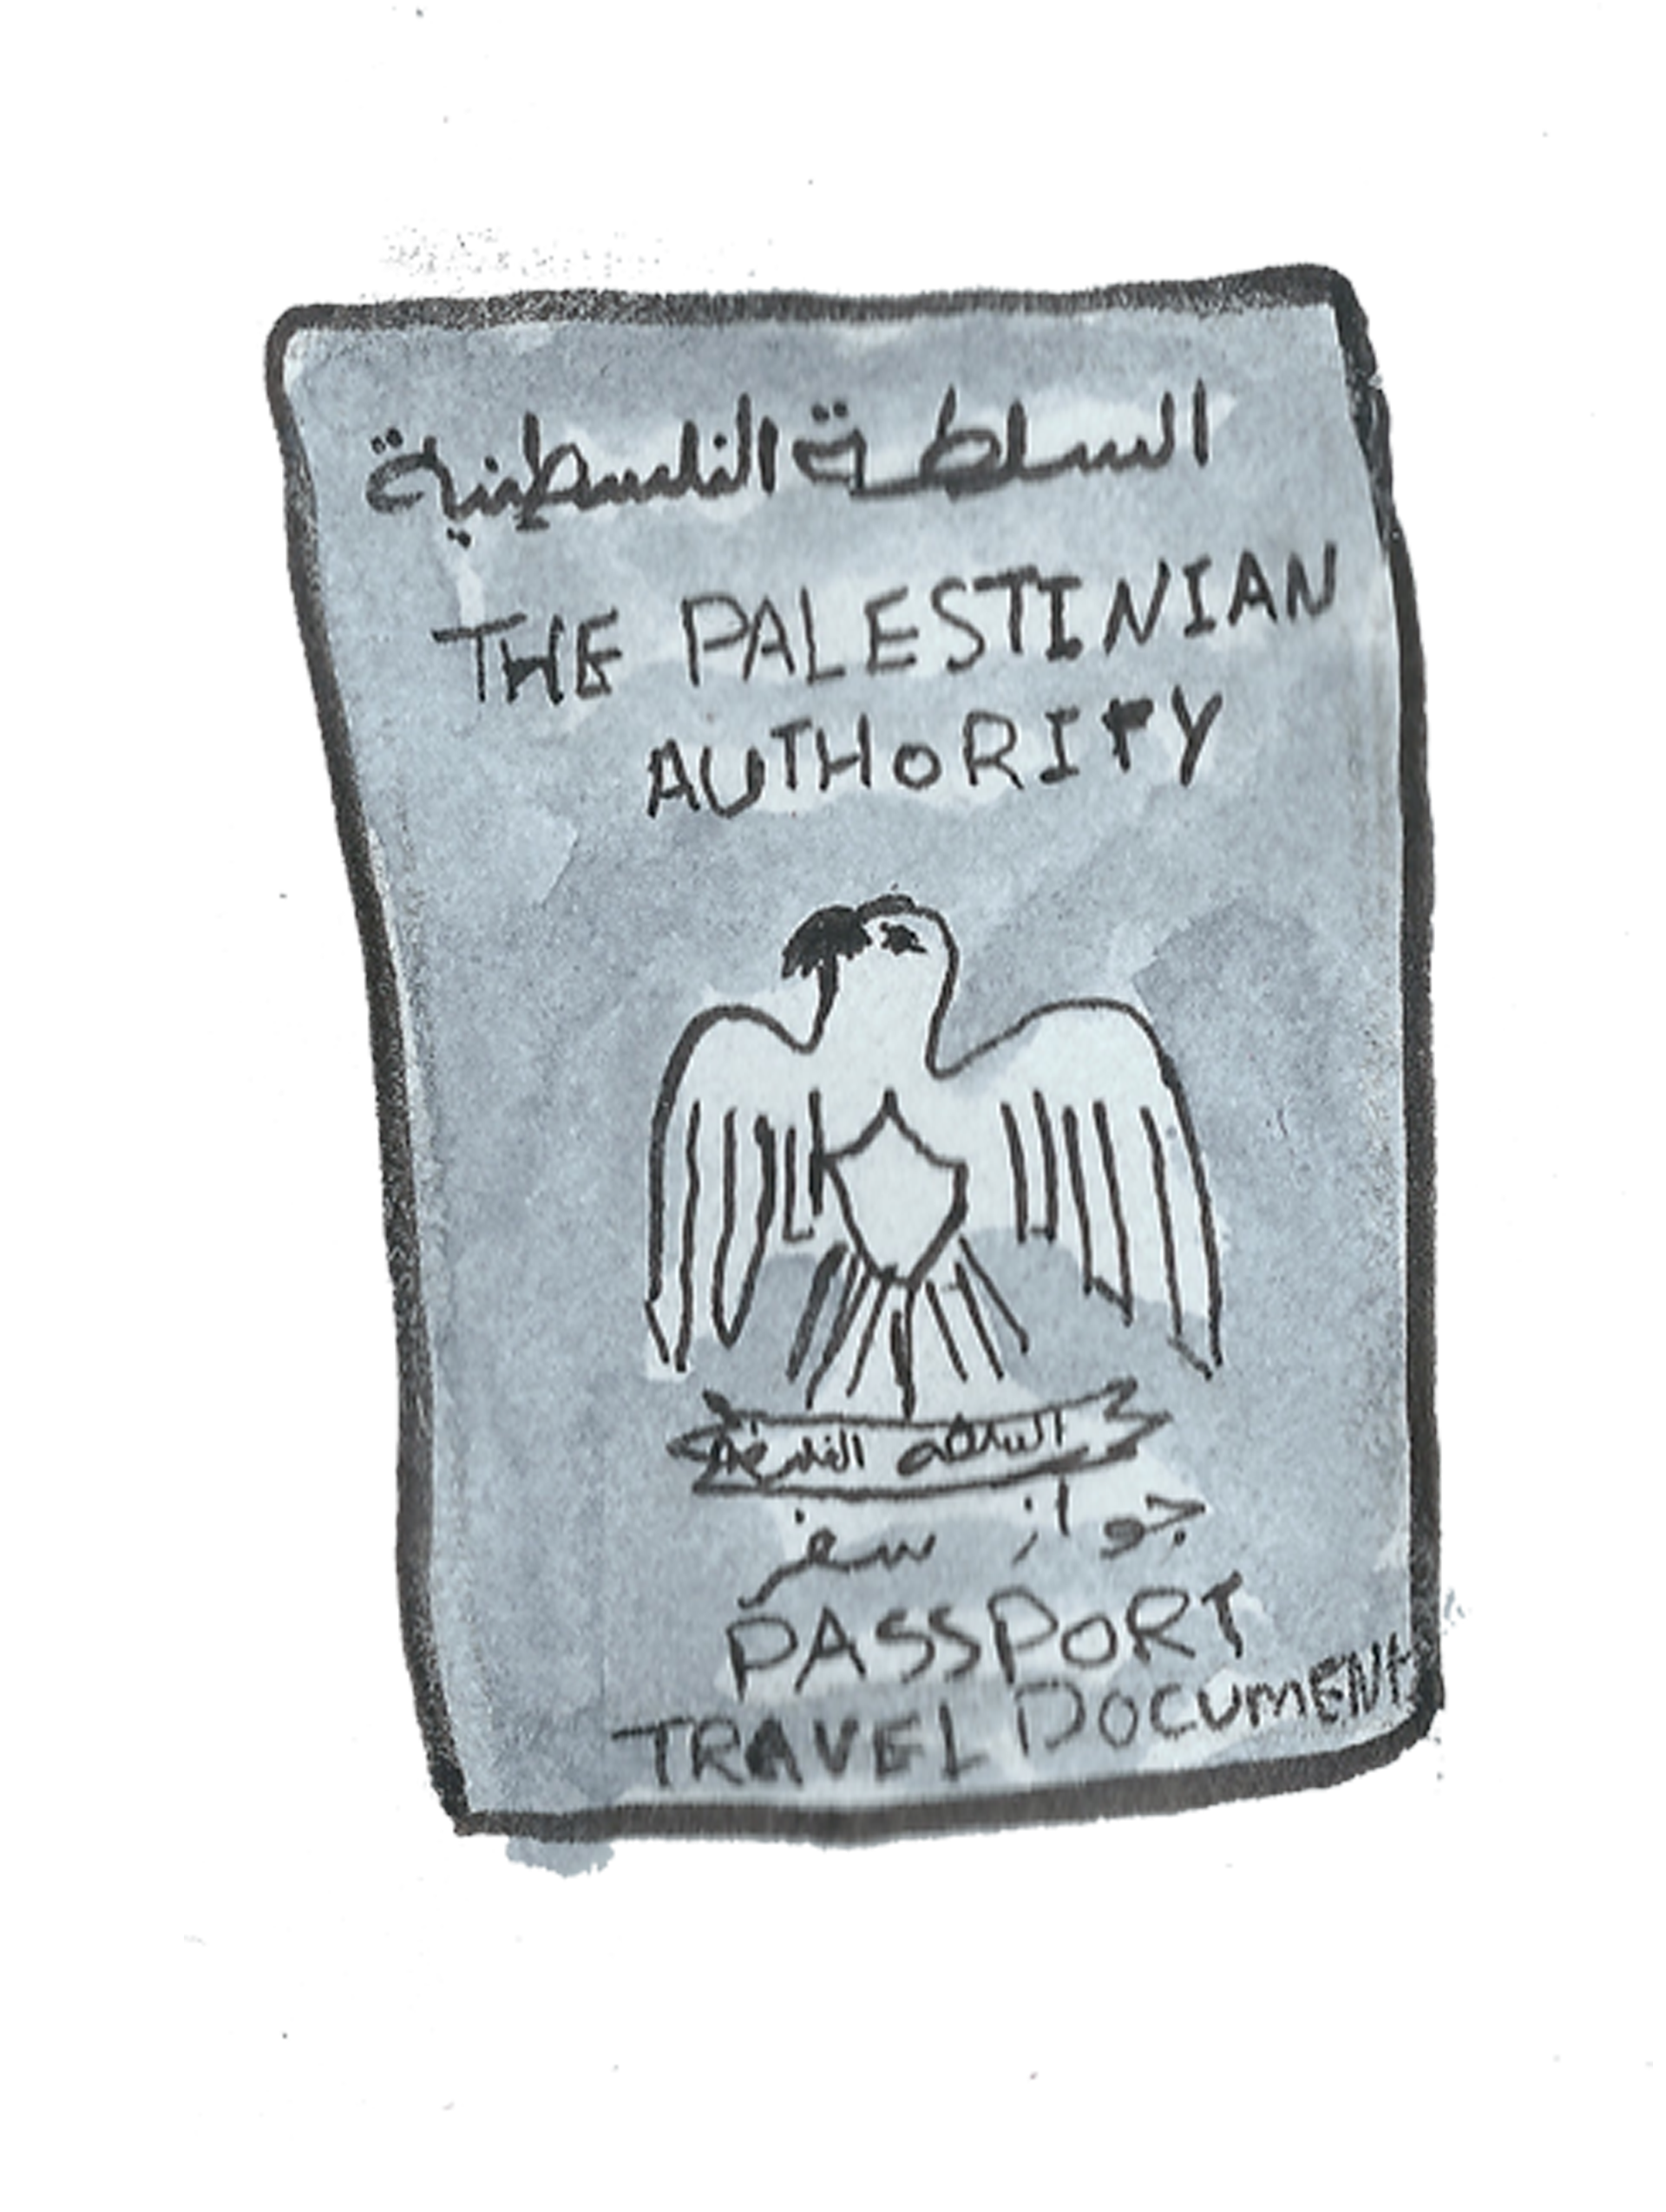 السلطة الفلسطينية
THE PALESTINIAN
AUTHORITY
السلطة الفلسطينية
جواز سفر
PASSPORT
TRAVEL DOCUMENT